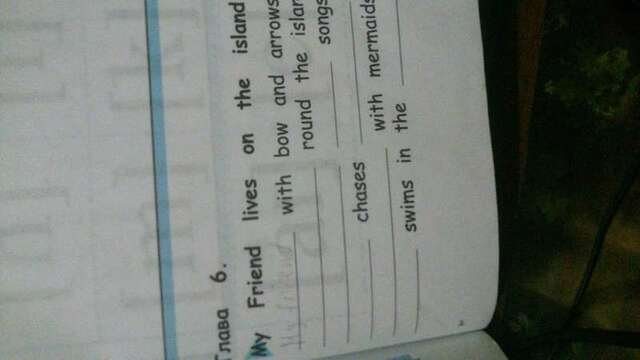 Глава 6.
My Friend lives on the island
My friend with bow and arrows
round the islan
songs
chases
with mermaids
swims in the